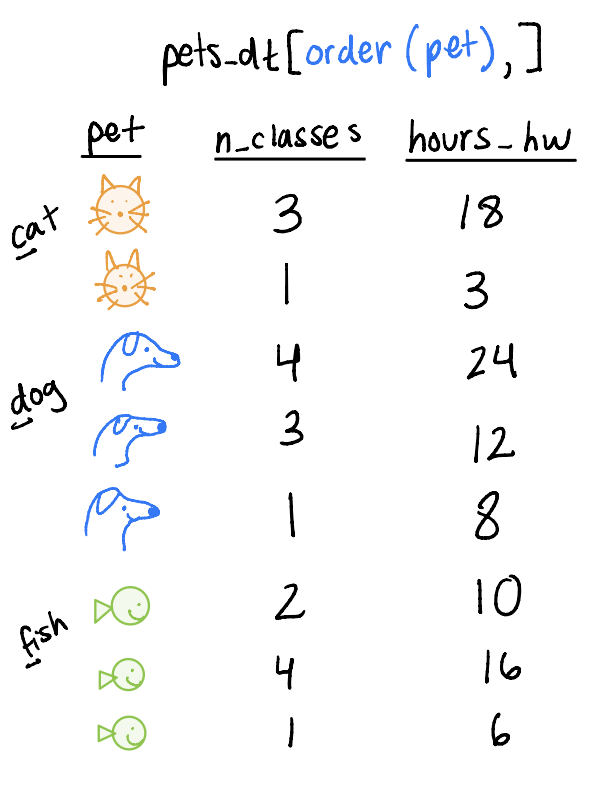 pets_dt[order(pet),]
pet n_classes hours_hw
cat 3 18
1 3
dog 4 24
3 12
1 8
fish 2 10
4 16
1 6